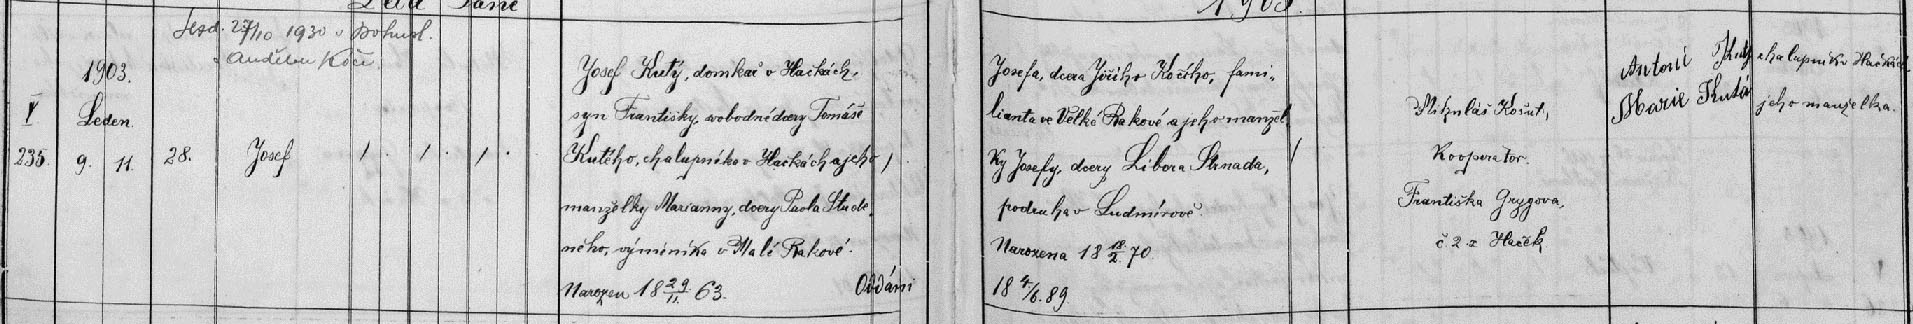 Sezd. 27/10 1930 v Bohusl.
s Anděbu Kočí.
1903.
V Leden.
235. 9. 11. 28. Josef 1. 1. 1.
Josef Kutý, domkař v Hačkách,
syn Františky, svobodné dcery Tomáše
Kutého, chalupníka v Hačkách a jeho
manželky Marianny, dcery Pavla Stude-
ného, výměníka v Malé Rakové.
Narozen 18 29/11 63.
Oddáni
Josefa, dcera Jiřího Kočího, fami-
lianta ve Velké Rakové a jeho manžel-
ky Josefy, dcery Libora Strnada,
podruha v Ludmírově.
Narozena 18 18/2 70
18 4/6. 89
Mikuláš Košut,
Kooperator.
Františka Grygova,
č. 2 z Haček
Antoní Kutý chalupník v Hačkách
Marie Kutá jeho manželka.